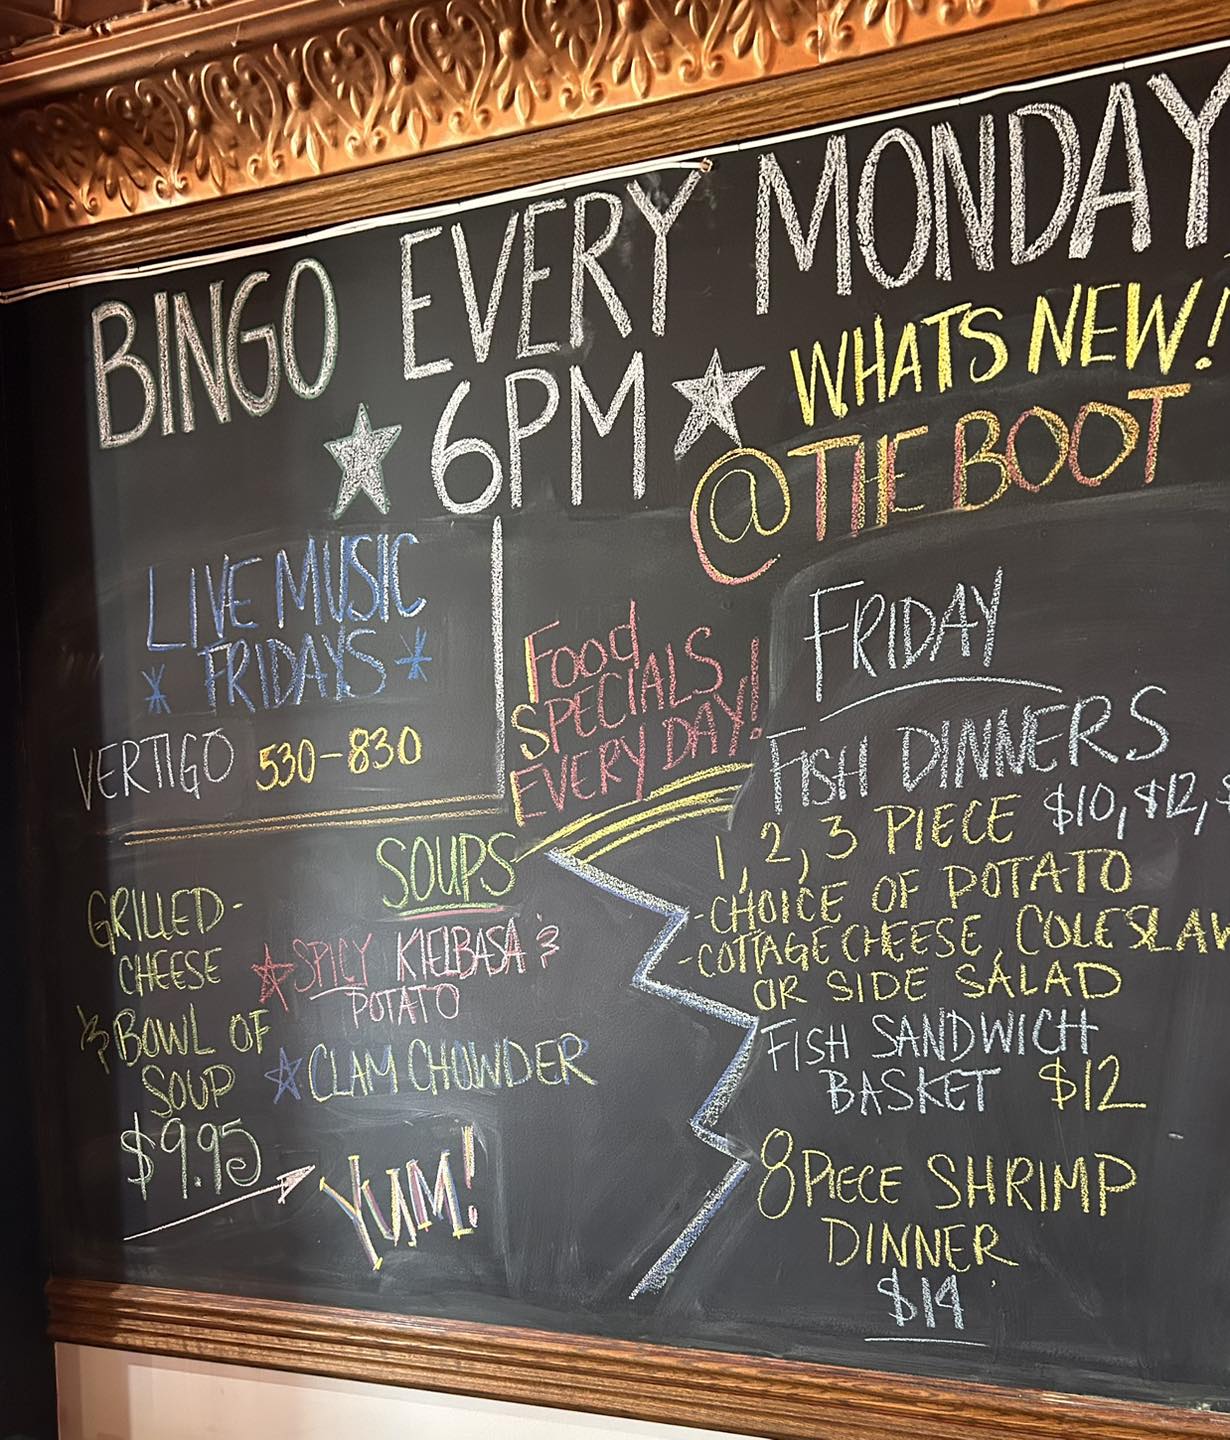 BINGO EVERY MONDAY
★ 6PM ★
WHATS NEW!
@THE BOOT
LIVE MUSIC
* FRIDAYS *
VERTIGO 530-830
Food
SPECIALS
EVERY DAY!
SOUPS
GRILLED-
CHEESE
& BOWL OF
SOUP
$9.95
☆ SPICY KIELBASA &
POTATO
☆ CLAM CHOWDER
YUM!
FRIDAY
FISH DINNERS
1, 2, 3 PIECE $10, $12, $
-CHOICE OF POTATO
-COTTAGE CHEESE, COLESLAW
OR SIDE SALAD
FISH SANDWICH
BASKET $12
8 PIECE SHRIMP
DINNER
$14